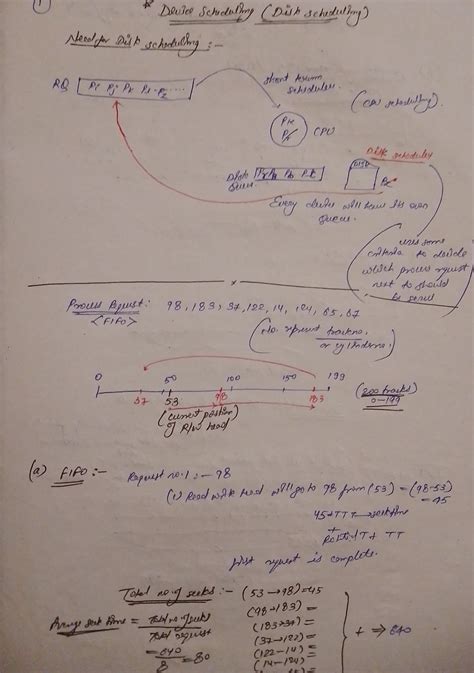 1
* Device Scheduling (Disk scheduling)
Need for Disk scheduling :-
RQ Pi Pj Pk Pl Pz ....
short term
scheduler
(CPU scheduling)
CPU
Disk scheduler
Disk
Queue
Disk
Every device will have its own
queue.
uses some
criteria to decide
which process request
next to should
be served
x
Process Request : 98, 183, 37, 122, 14, 124, 65, 67
<FIFO>
(No. represent track no.
or cylinder no.)
0 50 100 150 199
37 53 98 183
(200 tracks)
0-199
(current position
of R/W head)
(a) FIFO :-
Request no. 1 :- 98
(1) Read write head will go to 98 from (53) = (98-53)
= 45
+
TT
first request is complete.
Total no. of seeks :- (53 → 98) = 45
(98 → 183) =
(183 → 37) =
(37 → 122) =
(122 → 14) =
(14 → 124) =
+ ⇒ 640
Average seek time = Total no. of seeks
Total request
= 640
8
= 80